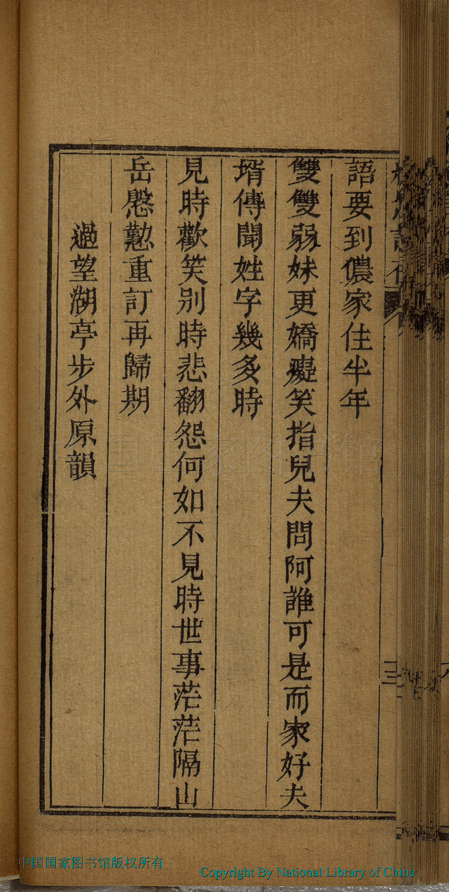 語要到儂家住半年
雙雙弱妹更嬌癡笑指兒夫問阿誰可是而家好夫
壻傳聞姓字幾多時
見時歡笑別時悲翻怨何如不見時世事茫茫隔山
岳慇懃重訂再歸期
過望湖亭步外原韻
三
中国国家图书馆版权所有
Copyright By National Library of China